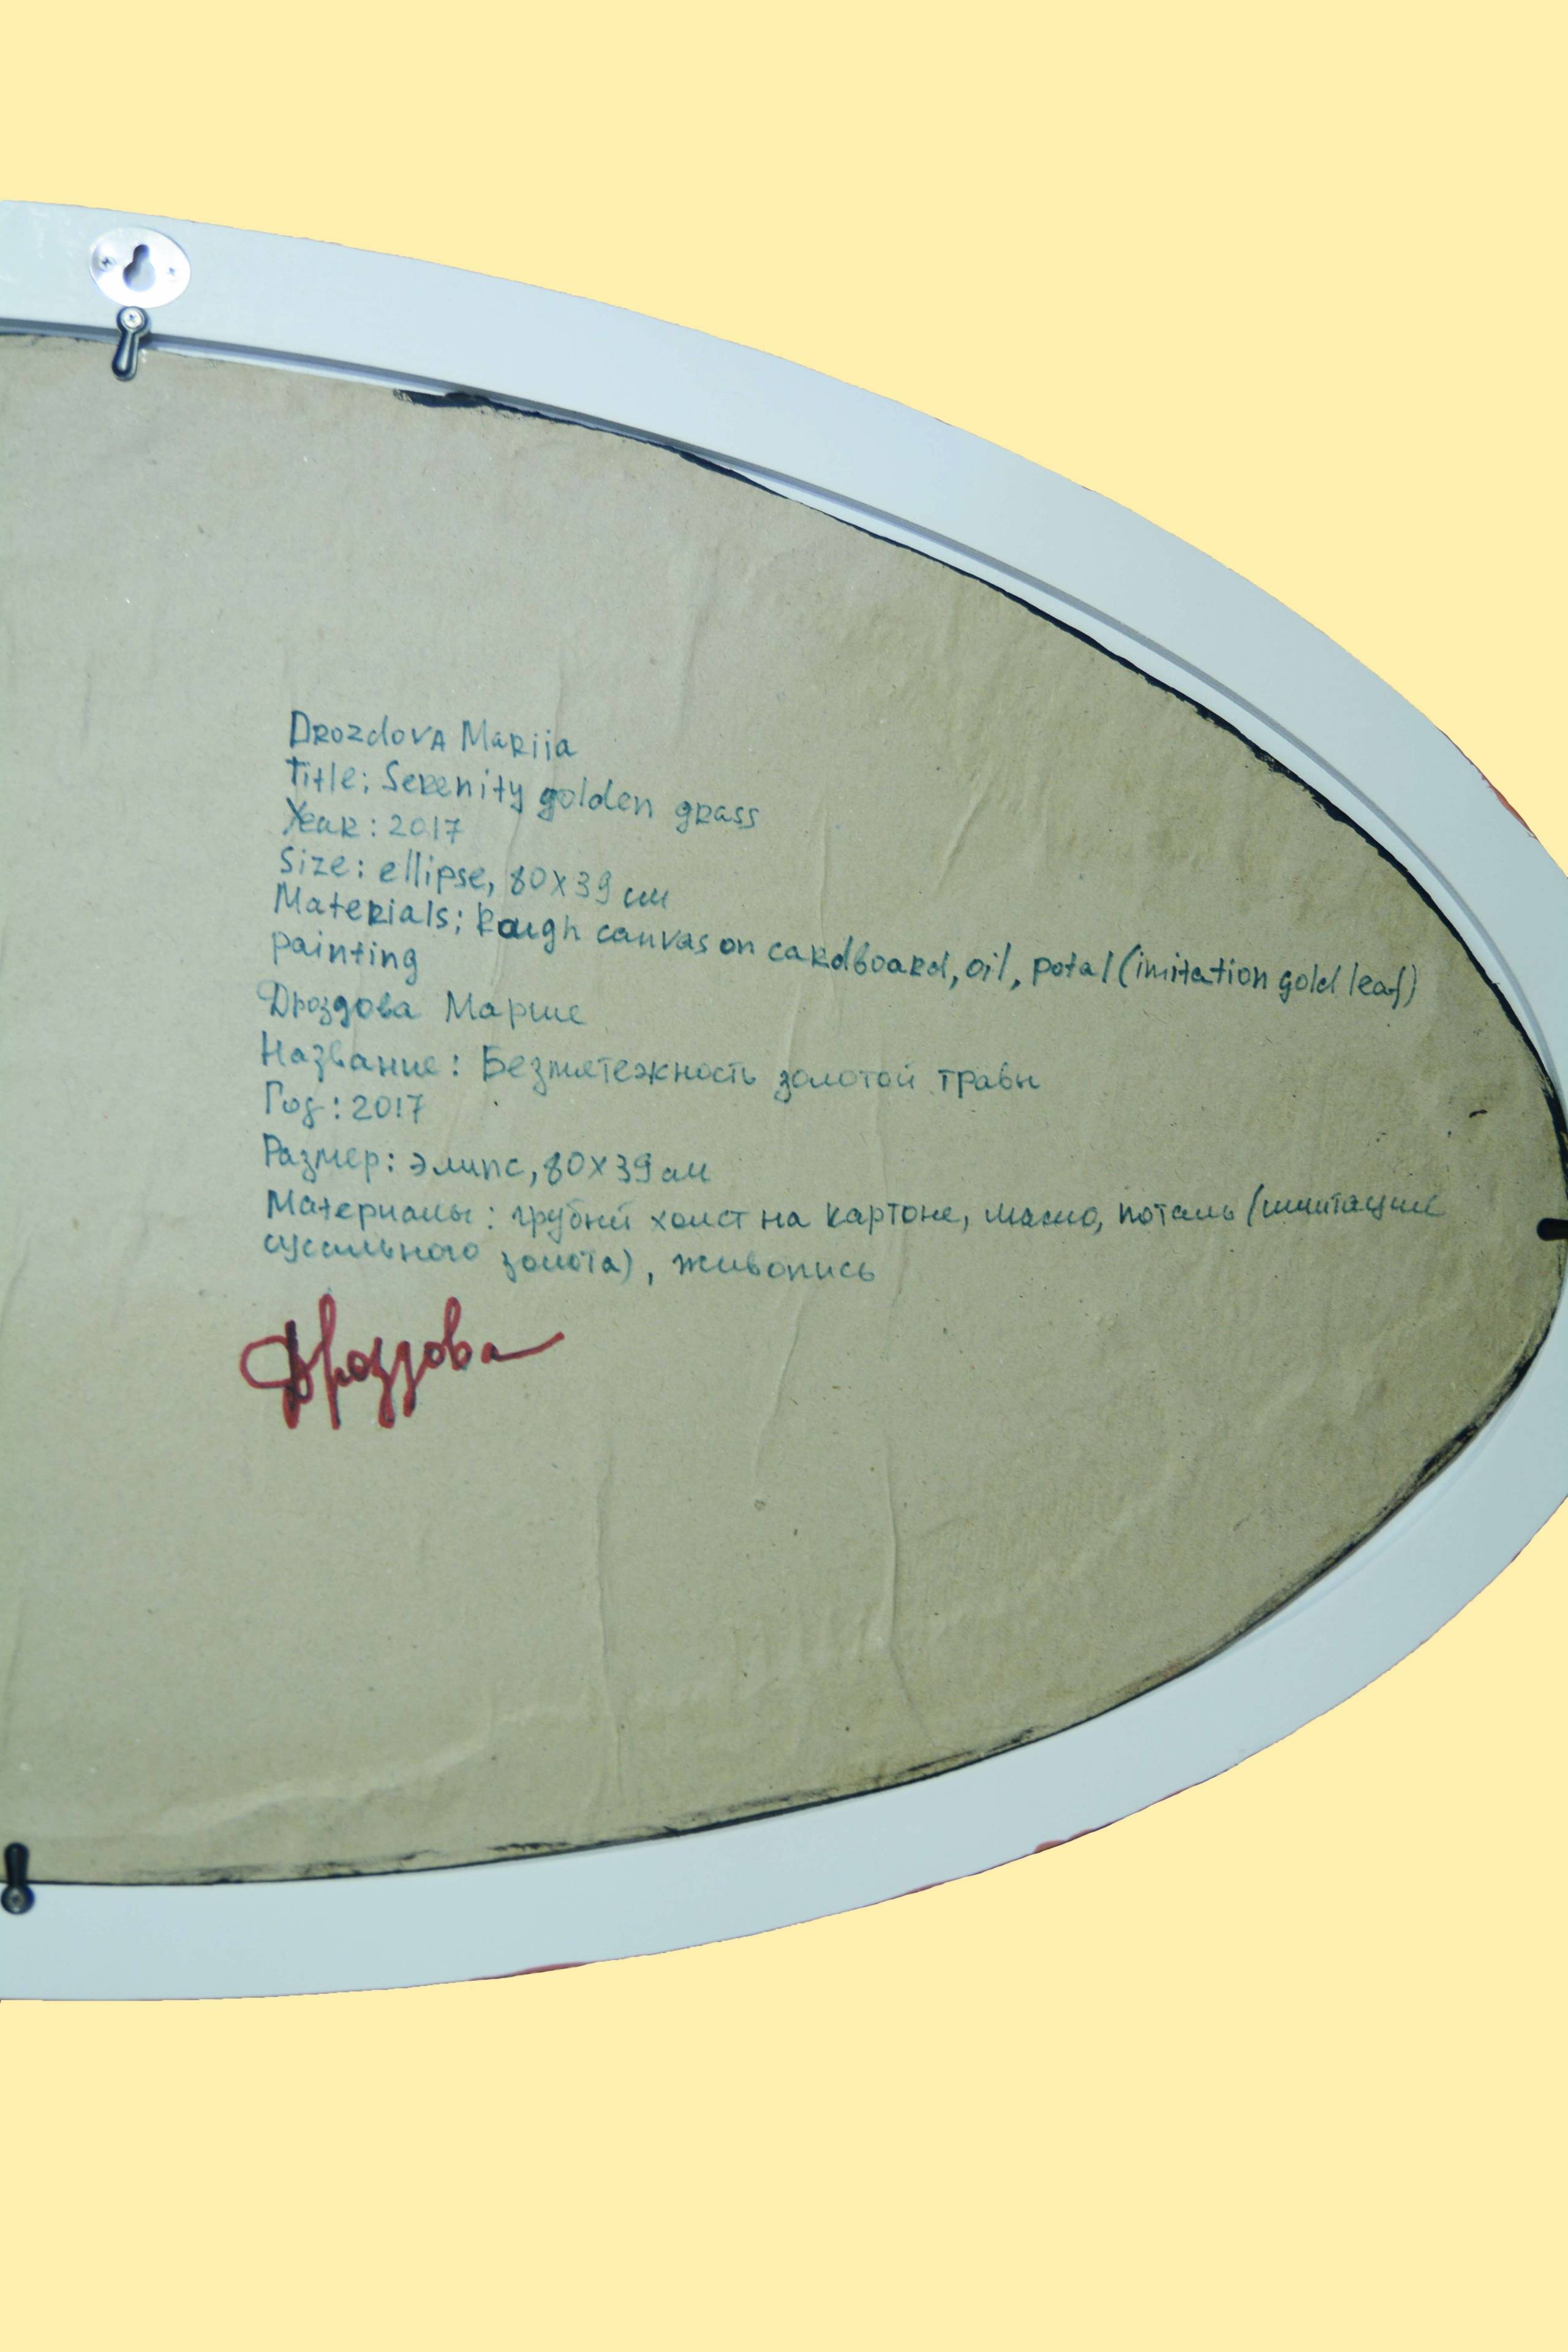 Drozdova Mariia
Title: Serenity golden grass
Year: 2017
Size: ellipse, 80x39 см
Materials: Rough canvas on cardboard, oil, potal (imitation gold leaf)
painting
Дроздова Мария
Название: Безмятежность золотой травы
Год: 2017
Размер: элипс, 80х39 см
Материалы: грубый холст на картоне, масло, поталь (имитация
сусального золота), живопись
Дроздова